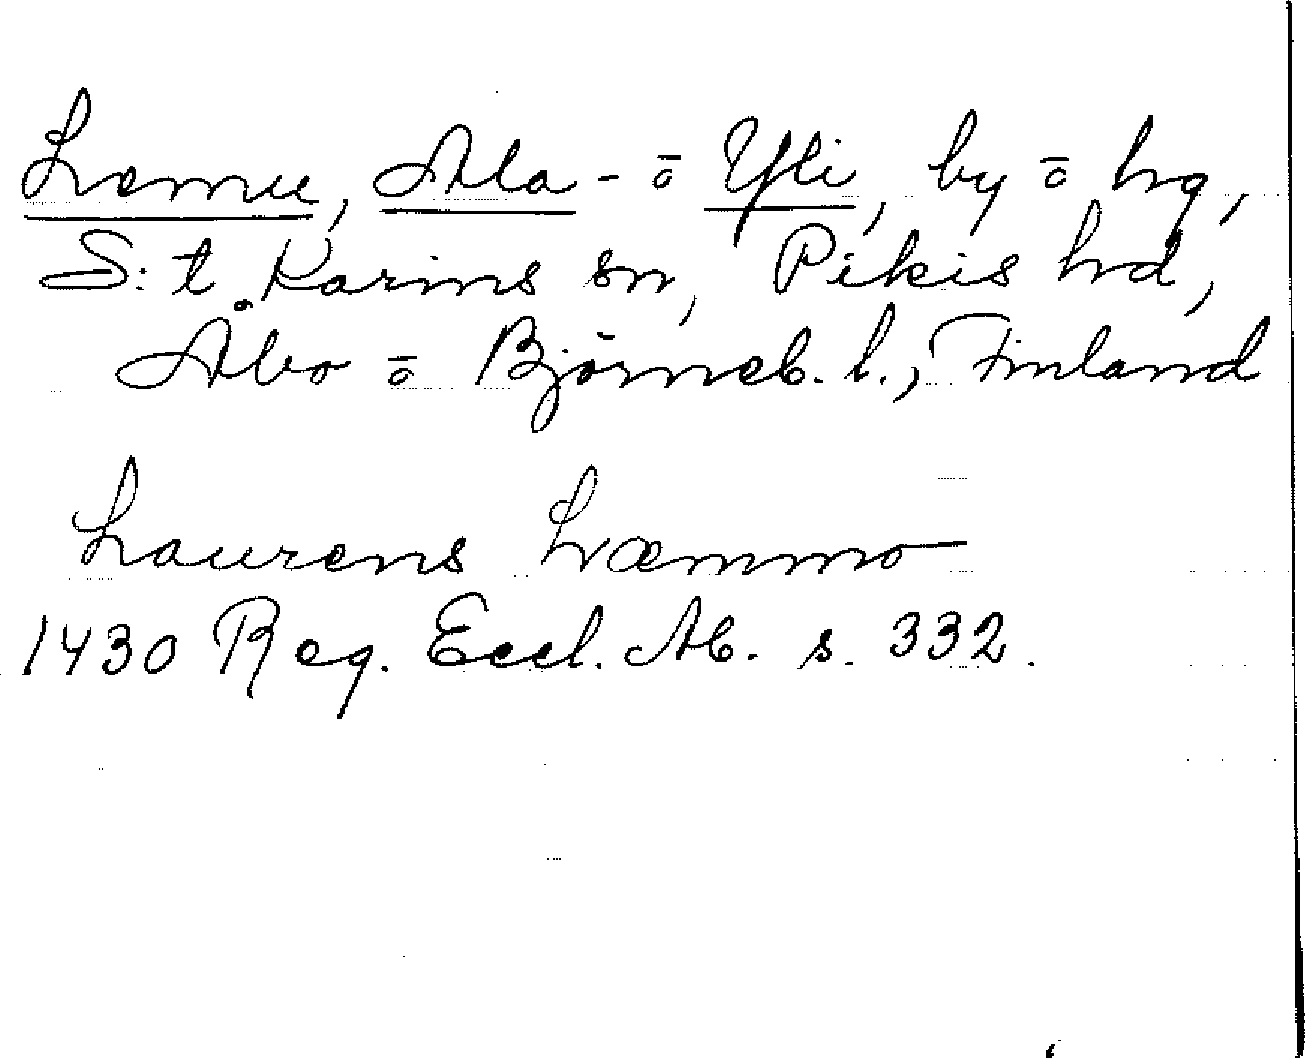 Lemu, Ala- ō Yli, by ō hrg,
S:t Karins sn, Pikis hrd,
Åbo ō Björneb. l., Finland
Laurens Læmmo
1430 Reg. Eccl. Ab. s. 332.